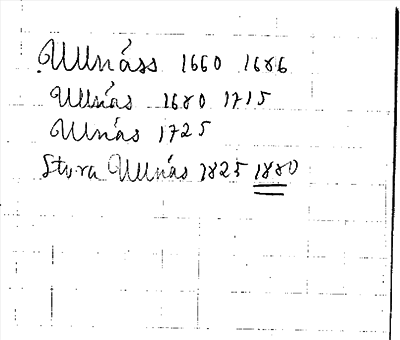 Ullnáss 1660 1686
Ullnás 1680 1715
Ulnás 1725
Stora Ullnás 1825 1880